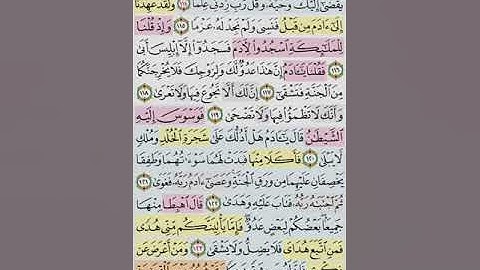 يُقْضَىٰ إِلَيْكَ وَحْيُهُۥ وَقُل رَّبِّ زِدْنِى عِلْمًا ١١٤ وَلَقَدْ عَهِدْنَآ
إِلَىٰٓ ءَادَمَ مِن قَبْلُ فَنَسِىَ وَلَمْ نَجِدْ لَهُۥ عَزْمًا ١١٥ وَإِذْ قُلْنَا
لِلْمَلَٰٓئِكَةِ ٱسْجُدُوا۟ لِءَادَمَ فَسَجَدُوٓا۟ إِلَّآ إِبْلِيسَ أَبَىٰ
١١٦ فَقُلْنَا يَٰٓـَٔادَمُ إِنَّ هَٰذَا عَدُوٌّ لَّكَ وَلِزَوْجِكَ فَلَا يُخْرِجَنَّكُمَا
مِنَ ٱلْجَنَّةِ فَتَشْقَىٰٓ ١١٧ إِنَّ لَكَ أَلَّا تَجُوعَ فِيهَا وَلَا تَعْرَىٰ ١١٨
وَأَنَّكَ لَا تَظْمَؤُا۟ فِيهَا وَلَا تَضْحَىٰ ١١٩ فَوَسْوَسَ إِلَيْهِ
ٱلشَّيْطَٰنُ قَالَ يَٰٓـَٔادَمُ هَلْ أَدُلُّكَ عَلَىٰ شَجَرَةِ ٱلْخُلْدِ وَمُلْكٍ
لَّا يَبْلَىٰ ١٢٠ فَأَكَلَا مِنْهَا فَبَدَتْ لَهُمَا سَوْءَٰتُهُمَا وَطَفِقَا
يَخْصِفَانِ عَلَيْهِمَا مِن وَرَقِ ٱلْجَنَّةِ وَعَصَىٰٓ ءَادَمُ رَبَّهُۥ فَغَوَىٰ ١٢١
ثُمَّ ٱجْتَبَٰهُ رَبُّهُۥ فَتَابَ عَلَيْهِ وَهَدَىٰ ١٢٢ قَالَ ٱهْبِطَا مِنْهَا
جَمِيعًۢا بَعْضُكُمْ لِبَعْضٍ عَدُوٌّ فَإِمَّا يَأْتِيَنَّكُم مِّنِّى هُدًى
فَمَنِ ٱتَّبَعَ هُدَاىَ فَلَا يَضِلُّ وَلَا يَشْقَىٰ ١٢٣ وَمَنْ أَعْرَضَ عَن